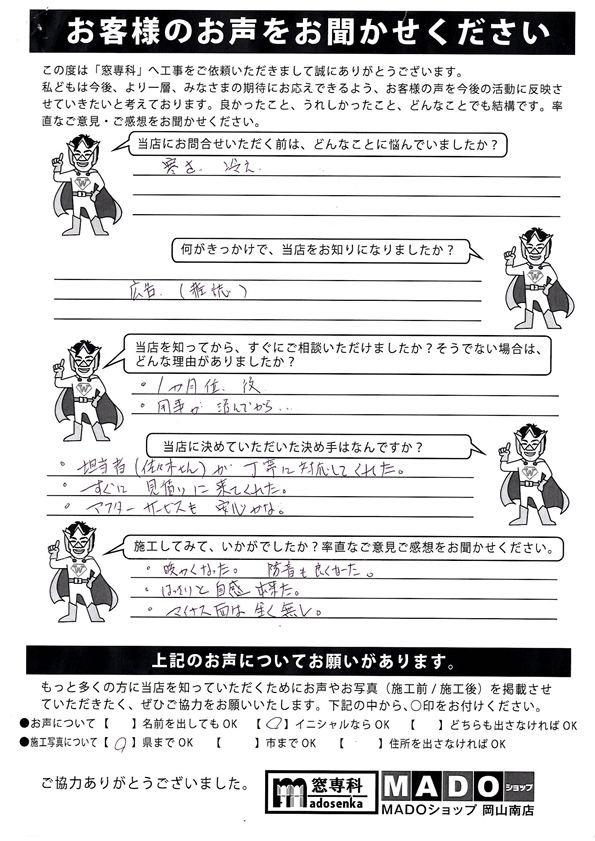 お客様のお声をお聞かせください
この度は「窓専科」へ工事をご依頼いただきまして誠にありがとうございます。
私どもは今後、より一層、みなさまの期待にお応えできるよう、お客様の声を今後の活動に反映さ
せていきたいと考えております。良かったこと、うれしかったこと、どんなことでも結構です。率
直なご意見・ご感想をお聞かせください。
当店にお問合せいただく前は、どんなことに悩んでいましたか？
寒さ. 冷え.
何がきっかけで、当店をお知りになりましたか？
広告. (雑誌)
当店を知ってから、すぐにご相談いただけましたか？そうでない場合は、
どんな理由がありましたか？
・1か月位. 後.
・用事が 済んでから...
当店に決めていただいた決め手はなんですか？
・担当者(佐々木さん)が 丁寧に対応してくれた。
・すぐに 見積りに 来てくれた。
・アフターサービスも 安心かな。
施工してみて、いかがでしたか？率直なご意見ご感想をお聞かせください。
・暖かくなった。 防音も良くなった。
・はっきりと 自感 出来た。
・マイナス面は 全く無し。
上記のお声についてお願いがあります。
もっと多くの方に当店を知っていただくためにお声やお写真（施工前/施工後）を掲載させ
ていただきたく、ぜひご協力をお願いいたします。下記の中から、〇印をお付けください。
●お声について【　】名前を出してもOK 【〇】イニシャルならOK 【　】どちらも出さなければOK
●施工写真について【〇】県までOK 【　】市までOK 【　】住所を出さなければOK
ご協力ありがとうございました。
窓専科
madosenka
MADOショップ
MADOショップ 岡山南店